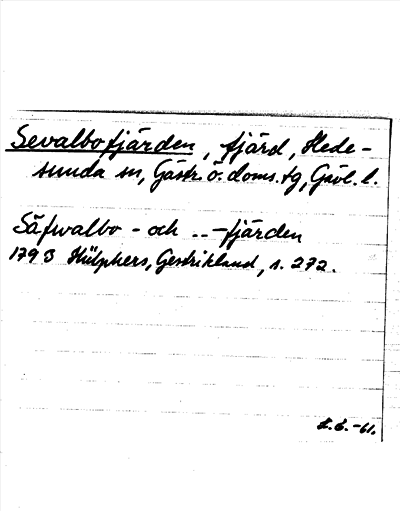 Sevalbofjärden, fjärd, Hede-
sunda sn, Gästr. ö. doms. tg, Gävl. l.
Säfwalbo - och .. -fjärden
1793 Hülphers, Gestrikland, s. 272.
-61.